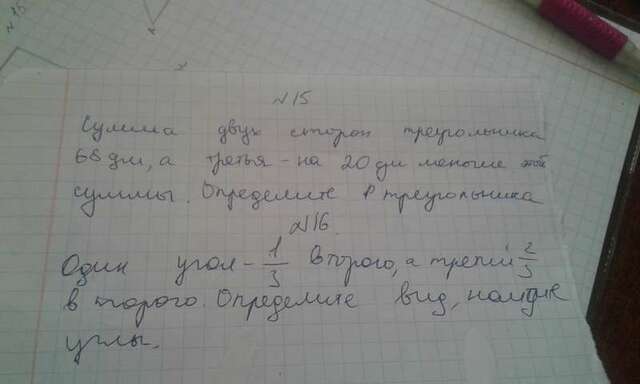 N 15
N15
Сумма двух сторон треугольника
68 дм, а третья - на 20 дм меньше этой
суммы. Определите P треугольника
N16.
Один угол - 1/3 второго, а третий 2/3
второго. Определите вид, найдите
углы.